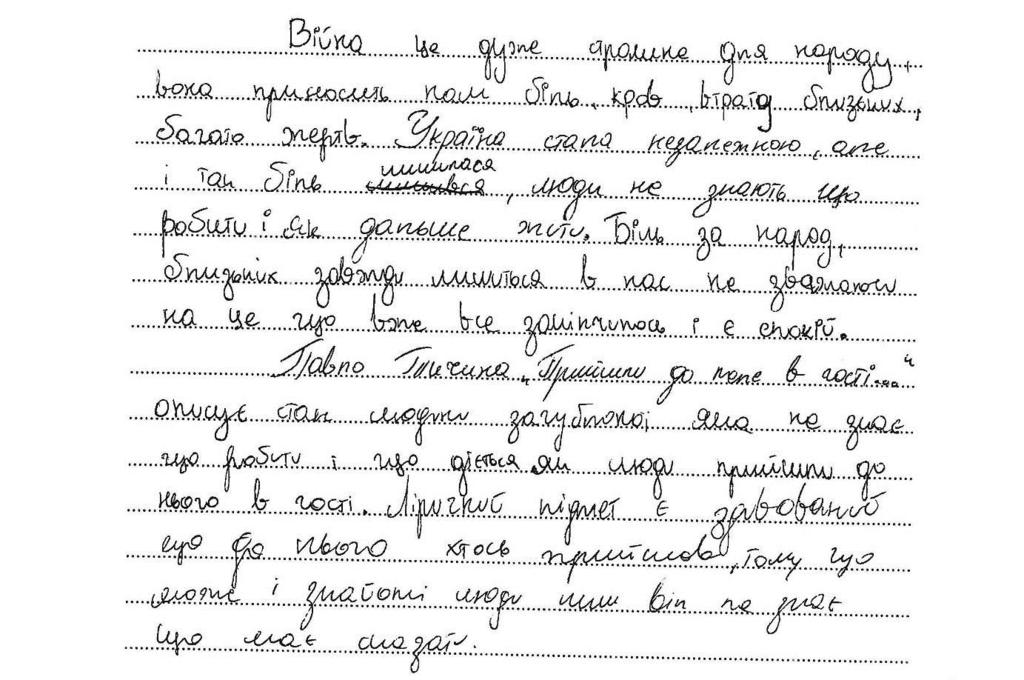 Війна це дуже страшне для народу,
вона приносить нам біль, кров, втрату близьких,
багато жертв. Україна стала незалежною, але
і так біль лишилася, люди не знають що
робити і як дальше жити. Біль за народ,
близьких завжди лишиться в нас не зважаючи
на це що вже все закінчилось і є спокій.
Павло Тичина „Прийшли до мене в гості...."
описує стан людини загубленої, яка не знає
що робити і що діється як люди прийшли до
нього в гості. Ліричний підмет є
що до нього хтось прийшов, тому що
може і знайомі люди але він не знає
що має сказати.